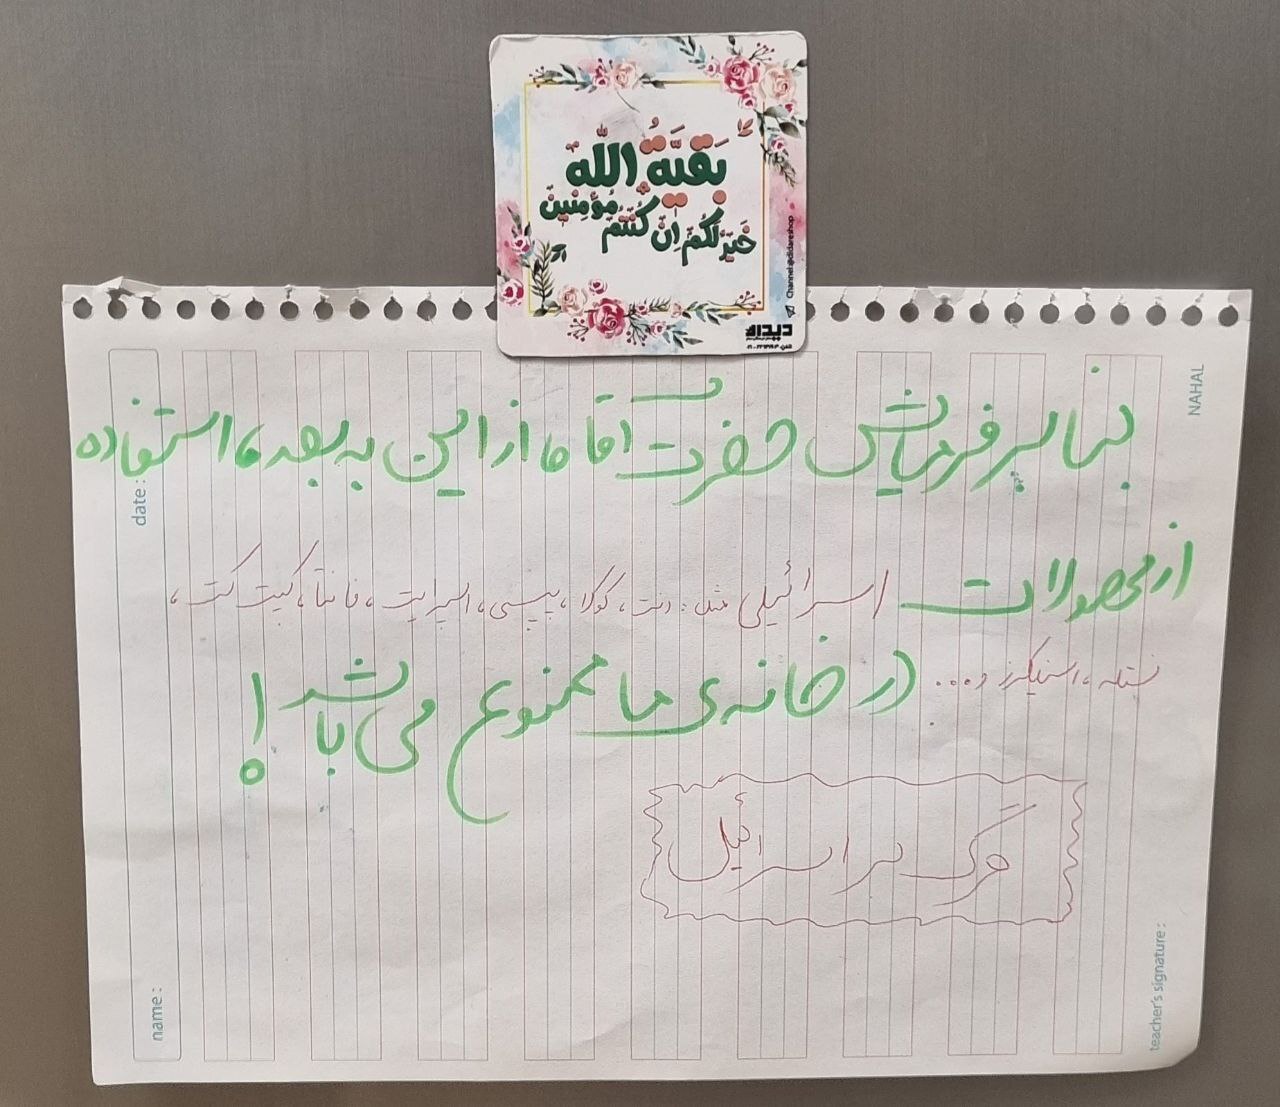 بَقیَّةُ اللّٰه
خَیرٌ لَکُم اِن کُنتُم مُؤمِنین
Channel:@didareshop
دیدار
NAHAL
بنا بر فرمایش حضرت آقا ما از این به بعد، استفاده
date :
از محصولات اسرائیلی مثل: دنت، کوکا، پیپسی، اسپرایت، فانتا، کیت کت،
نستله، اسنیکرز و... در خانه‌ی ما ممنوع می باشد!
مرگ بر اسرائیل
name :
teacher's signature :